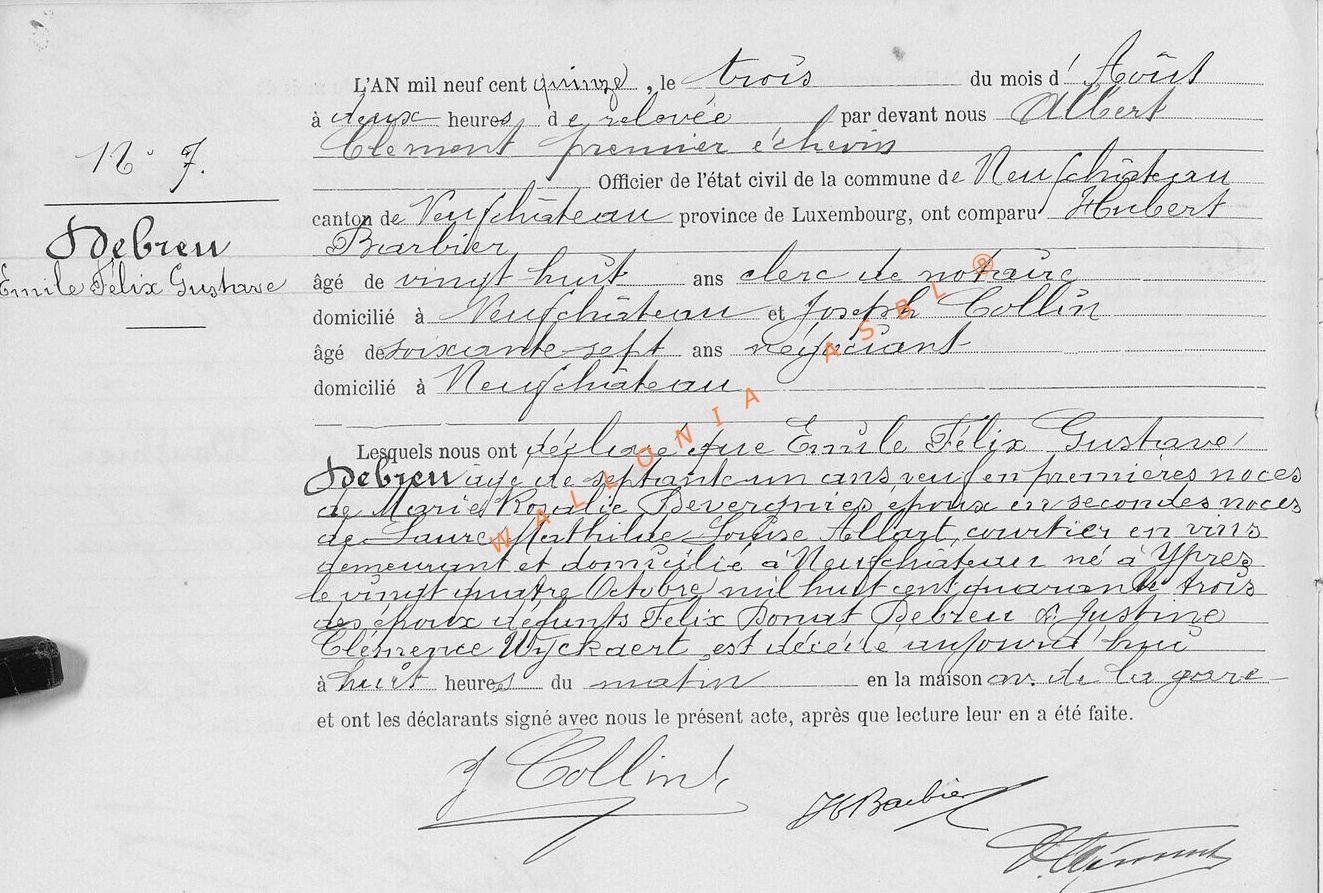 N° 7.
Debreu
Emile Félix Gustave
L'AN mil neuf cent quinze, le trois du mois d'Août
à deux heures de relevée par devant nous Albert
Clement premier échevin
Officier de l'état civil de la commune de Neufchâteau
canton de Neufchâteau province de Luxembourg, ont comparu Hubert
Barbier
âgé de vingt huit ans clerc de notaire
domicilié à Neufchâteau et Joseph Collin
âgé de soixante-sept ans négociant
domicilié à Neufchâteau
Lesquels nous ont déclaré que Emile Félix Gustave
Debreu âgé de septante un ans veuf en premières noces
de Marie Rosalie Devergnies époux en secondes noces
de Laure Mathilde Louise Allart, courtier en vins
demeurant et domicilié à Neufchâteau né à Ypres
le vingt quatre Octobre mil huit cent quarante trois
des époux défunts Félix Donat Debreu & Justine
Clémence Wyckaert, est décédé aujourd'hui
à huit heures du matin en la maison av. de la gare
et ont les déclarants signé avec nous le présent acte, après que lecture leur en a été faite.
J Collin
H Barbier
A. Clément
WALLONIA ASBL ®